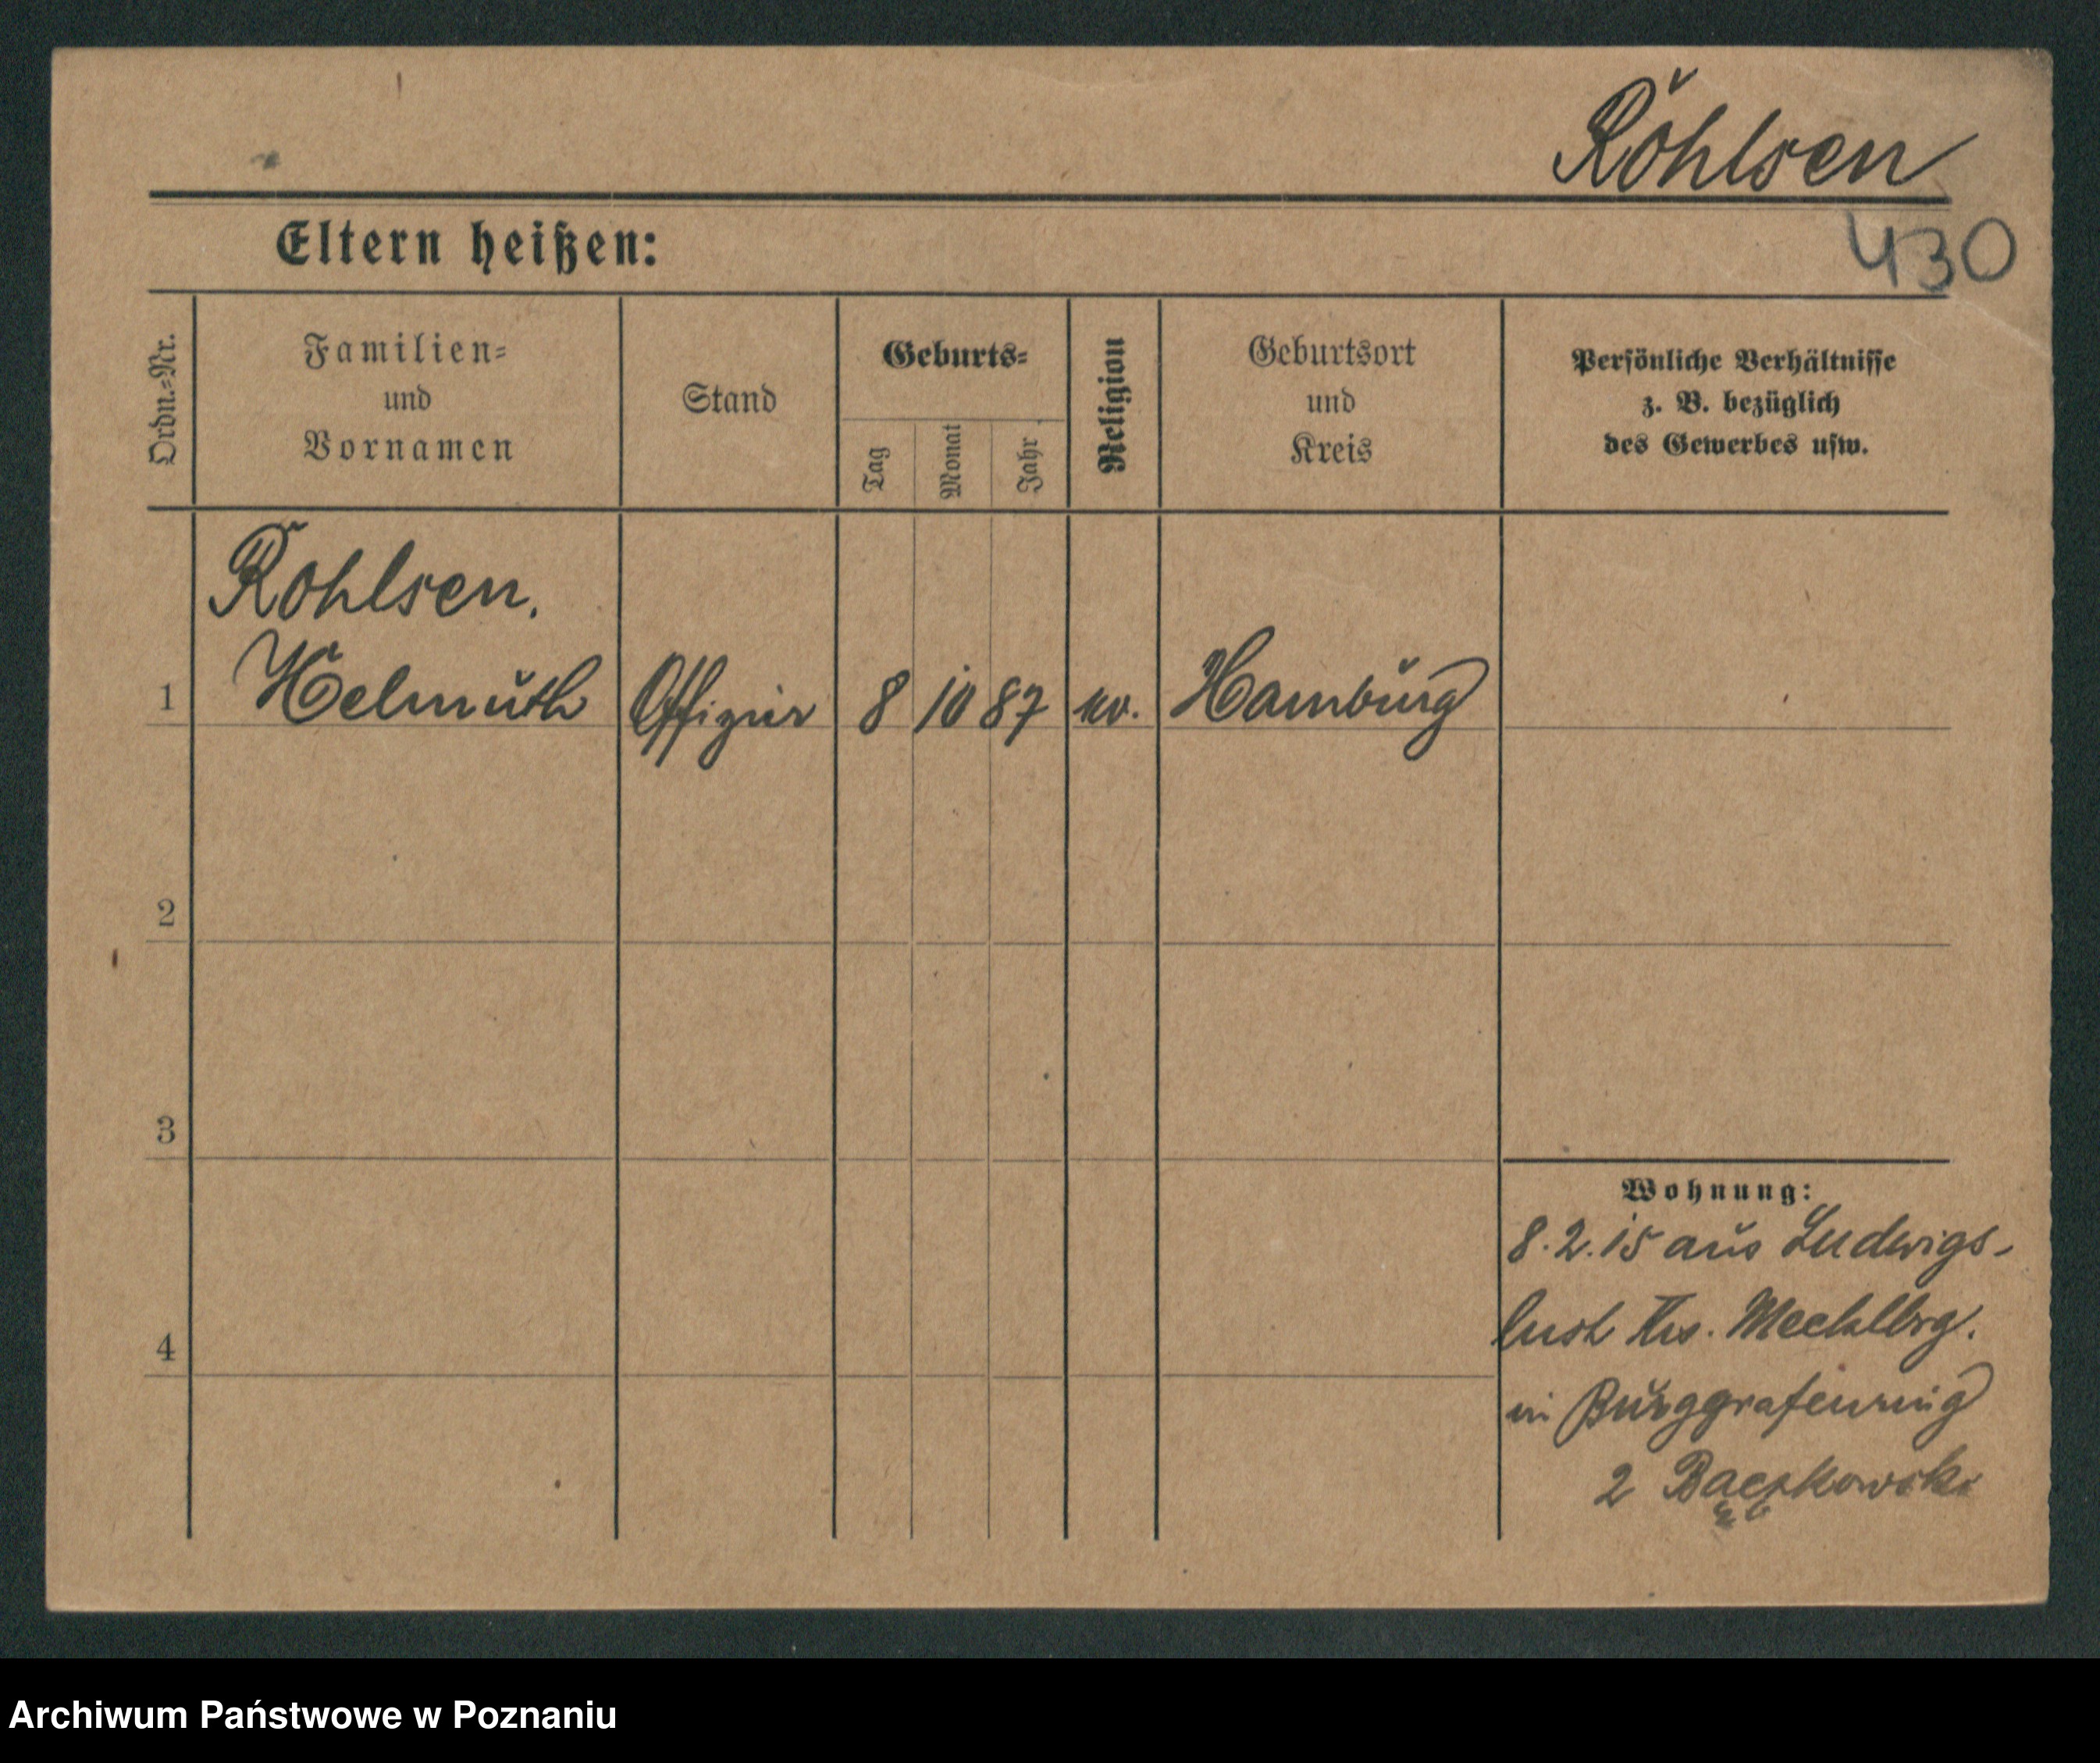 Röhlsen
430
Eltern heißen:
Ordn.-Nr.
Familien-
und
Vornamen
Stand
Geburts-
Tag
Monat
Jahr
Religion
Geburtsort
und
Kreis
Persönliche Verhältnisse
z. B. bezüglich
des Gewerbes usw.
Röhlsen.
1 Helmuth Offizier 8 10 87 ev. Hamburg
2
3
4
Wohnung:
8.2.15 aus Ludwigs-
lust Mecklbrg.
in Burggrafenring
2 Baczkowski
Archiwum Państwowe w Poznaniu